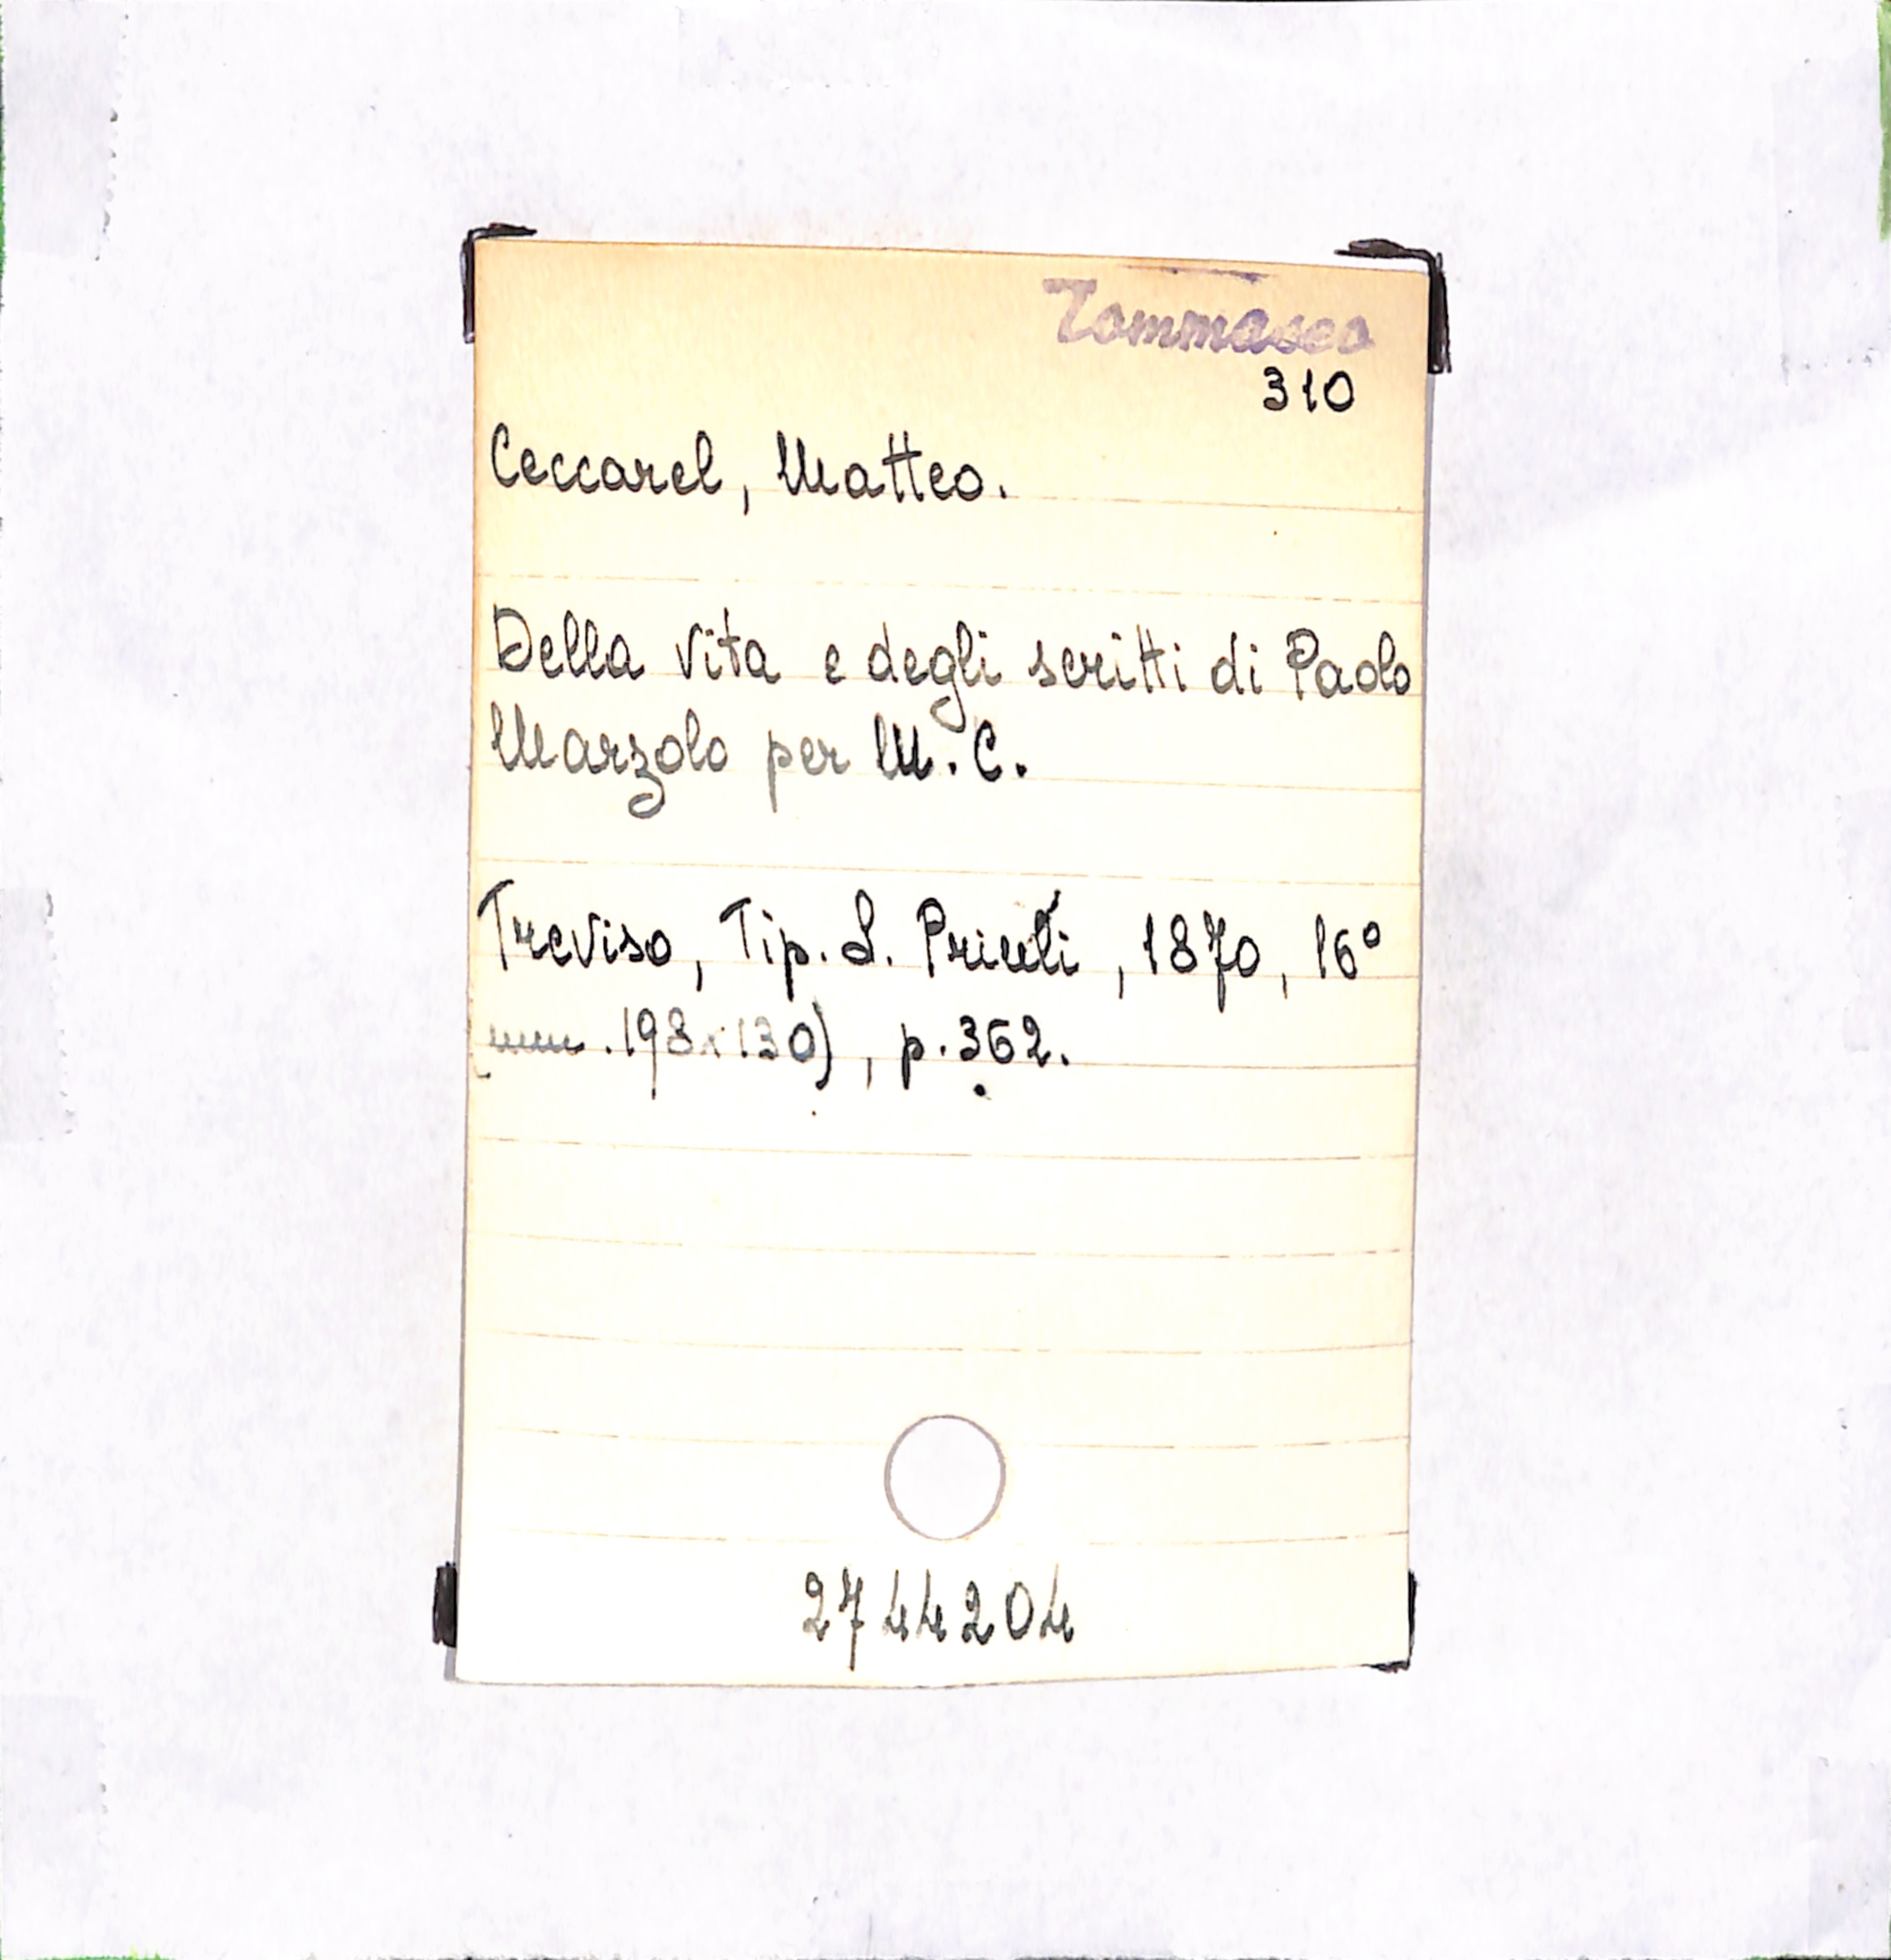 Tommaseo
310
Ceccarel, Matteo.
Della vita e degli scritti di Paolo
Marzolo per M. C.
Treviso, Tip. L. Priuli, 1870, 16°
(mm. 198x130), p. 362.
2744204